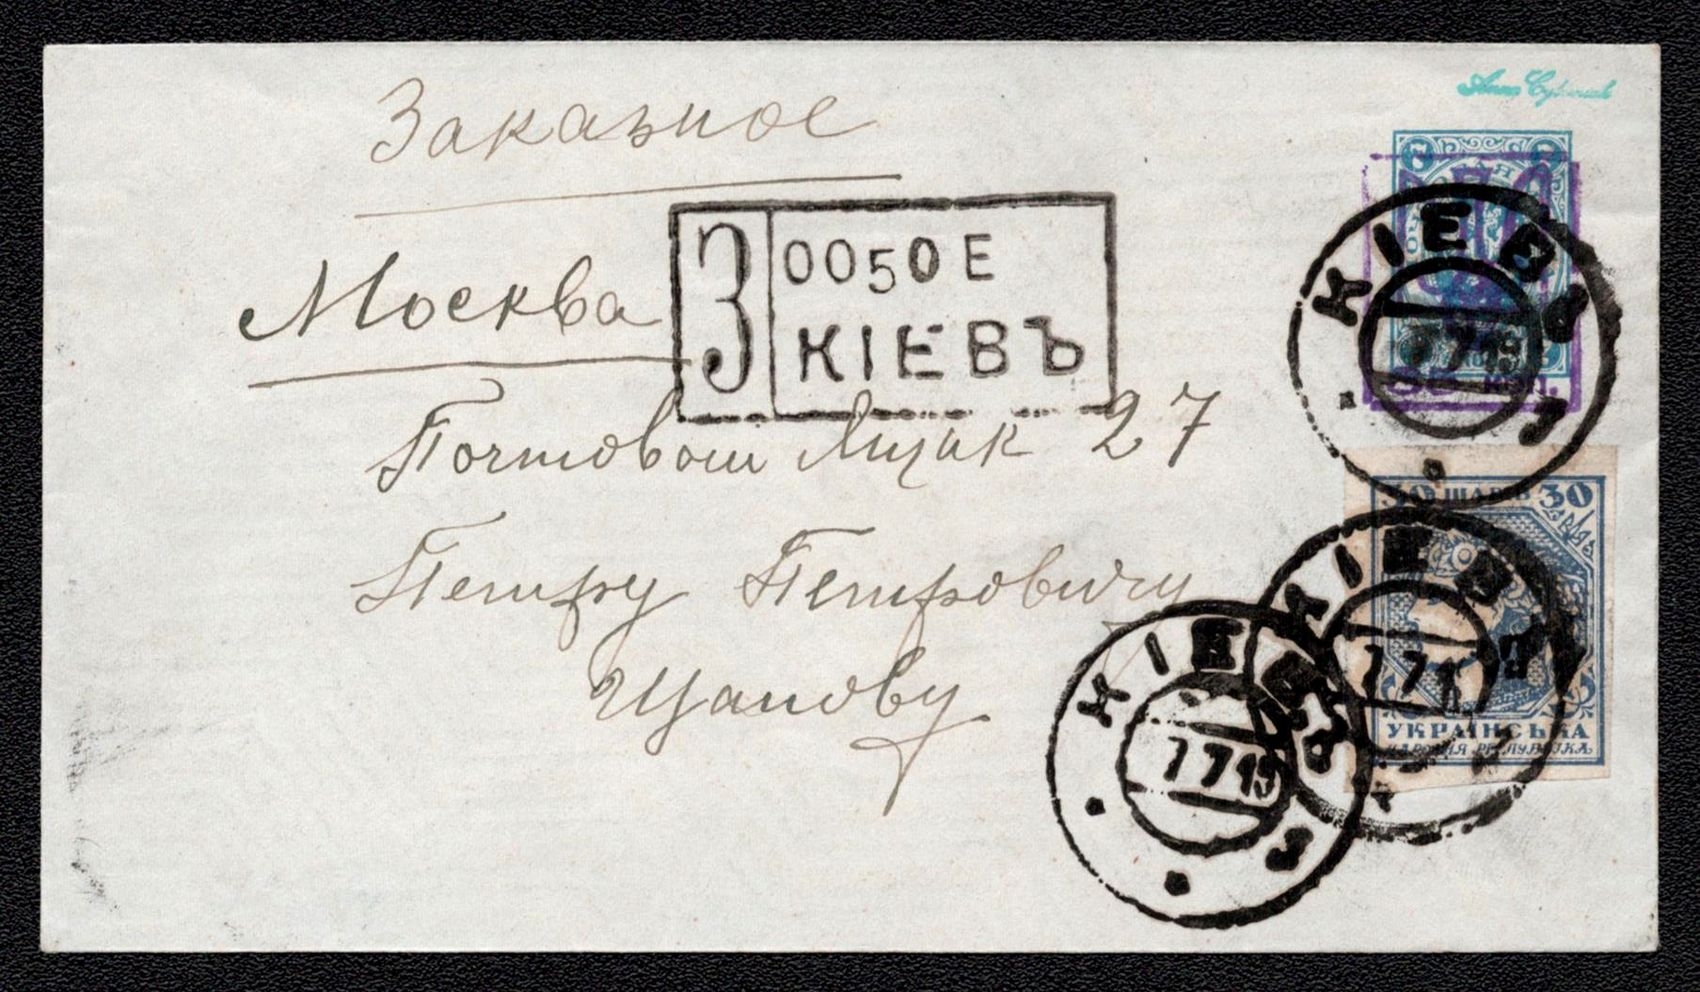 Заказное
Москва
З 0050 Е
КІЕВЪ
Почтовый Ящик 27
Петру Петровичу
Щапову
7
7
КІЕВЪ
7 7 19
коп.
30 ШАГІВ 30
УКРАЇНСЬКА
НАРОДНЯ РЕСПУБЛІКА
КІЕВЪ
7 7 19
КІЕВЪ
7 7 19